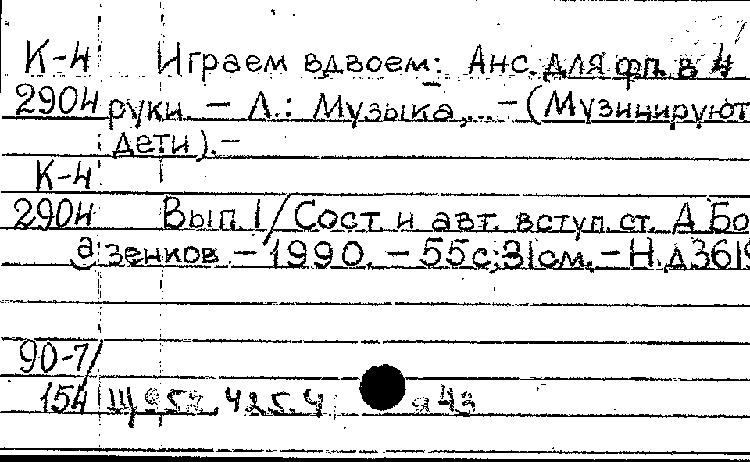 К-4 Играем вдвоем: Анс. для фп. в 4
2904 руки. – Л.: Музыка,... – (Музицируют
дети). –
К-4
2904 Вып. 1/Сост. и авт. вступ. ст. Д. Бо
а зенков. – 1990. – 55 с; 31 см. – Н.д 3619
90-7/
154 Щ 957.425.4 я 43